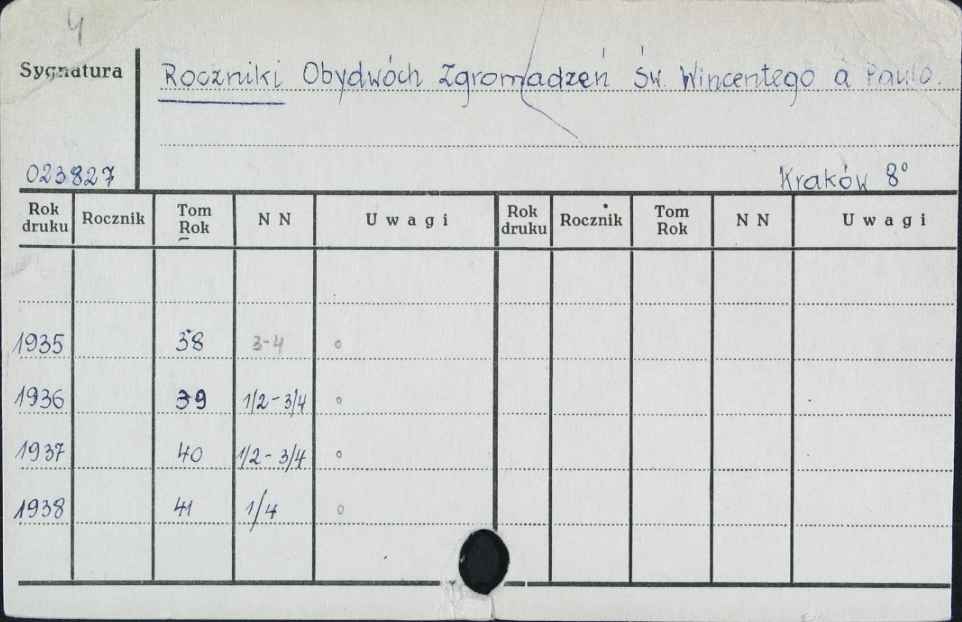 4
Sygnatura
Roczniki Obydwóch Zgromadzeń Św. Wincentego a Paulo.
023827
Kraków 8°
Rok druku Rocznik Tom Rok N N Uwagi Rok druku Rocznik Tom Rok N N Uwagi
1935 38 3-4 o
1936 39 1/2-3/4 o
1937 40 1/2-3/4 o
1938 41 1/4 o